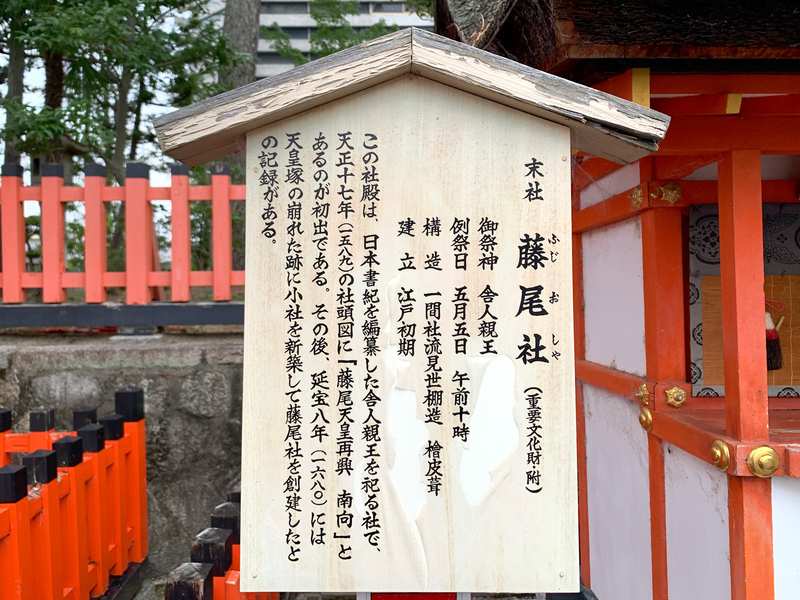 末社 藤尾社（重要文化財・附）
ふじ お しや
御祭神 舎人親王
例祭日 五月五日 午前十時
構造 一間社流見世棚造 檜皮葺
建立 江戸初期
この社殿は、日本書紀を編纂した舎人親王を祀る社で、
天正十七年（一五八九）の社頭図に「藤尾天皇再興 南向」と
あるのが初出である。その後、延宝八年（一六八〇）には
天皇塚の崩れた跡に小社を新築して藤尾社を創建したと
の記録がある。